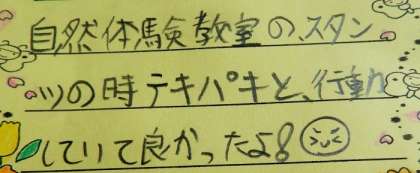 自然体験教室のスタン
ツの時テキパキと、行動
していて良かったよ!